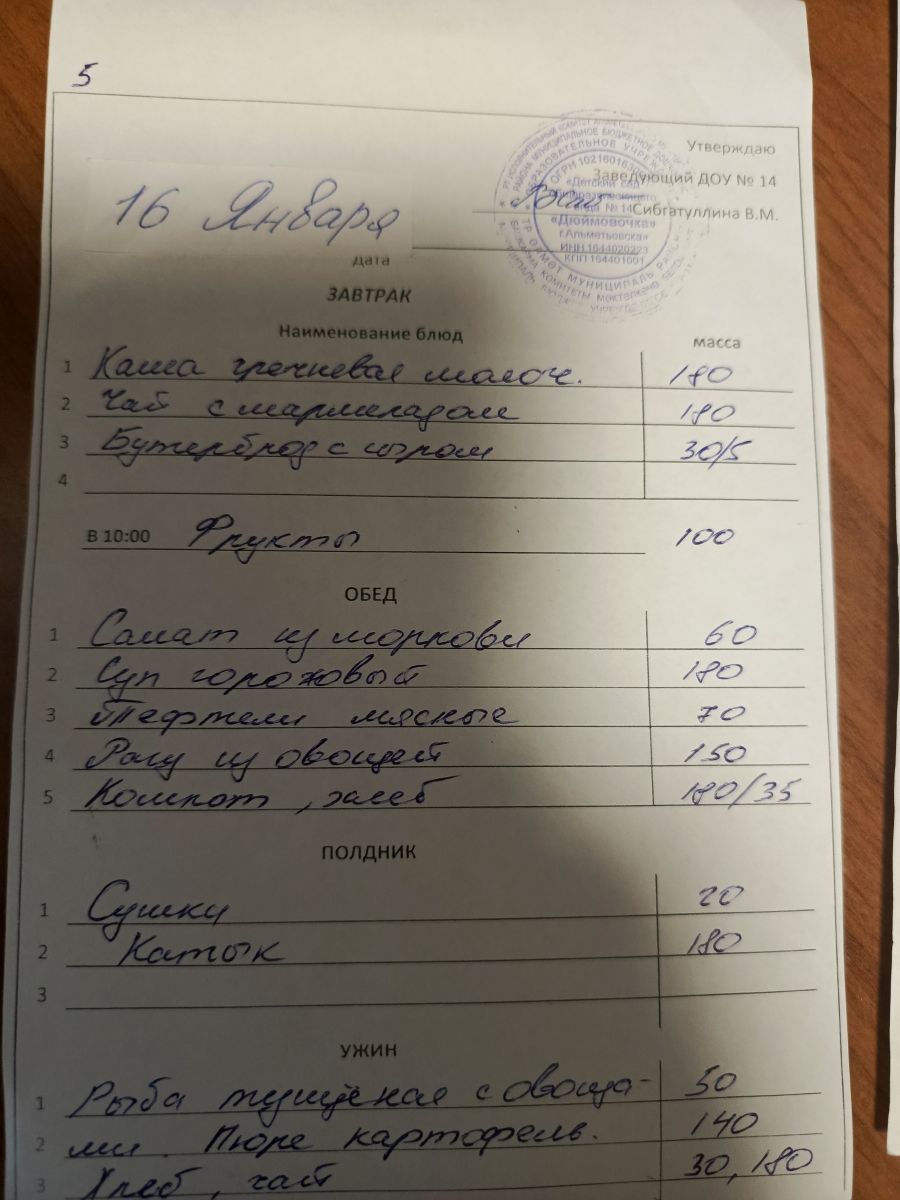 5
Утверждаю
Заведующий ДОУ № 14
Сибгатуллина В.М.
ОГРН 1021601630
«Детский сад
вида № 14
«Дюймовочка»
г.Альметьевска»
ИНН 1644020223
КПП 164401001
16 Января
дата
ЗАВТРАК
Наименование блюд масса
1 Каша гречневая молоч. 180
2 Чай с мармеладом 180
3 Бутерброд с сыром 30/5
4
В 10:00 Фрукты 100
ОБЕД
1 Салат из моркови 60
2 Суп гороховый 180
3 Тефтели мясные 70
4 Рагу из овощей 150
5 Компот, хлеб 180/35
ПОЛДНИК
1 Сушки 20
2 Катык 180
3
УЖИН
1 Рыба тущёная с овоща- 50
2 ми. Пюре картофельн. 140
3 Хлеб, чай 30, 180